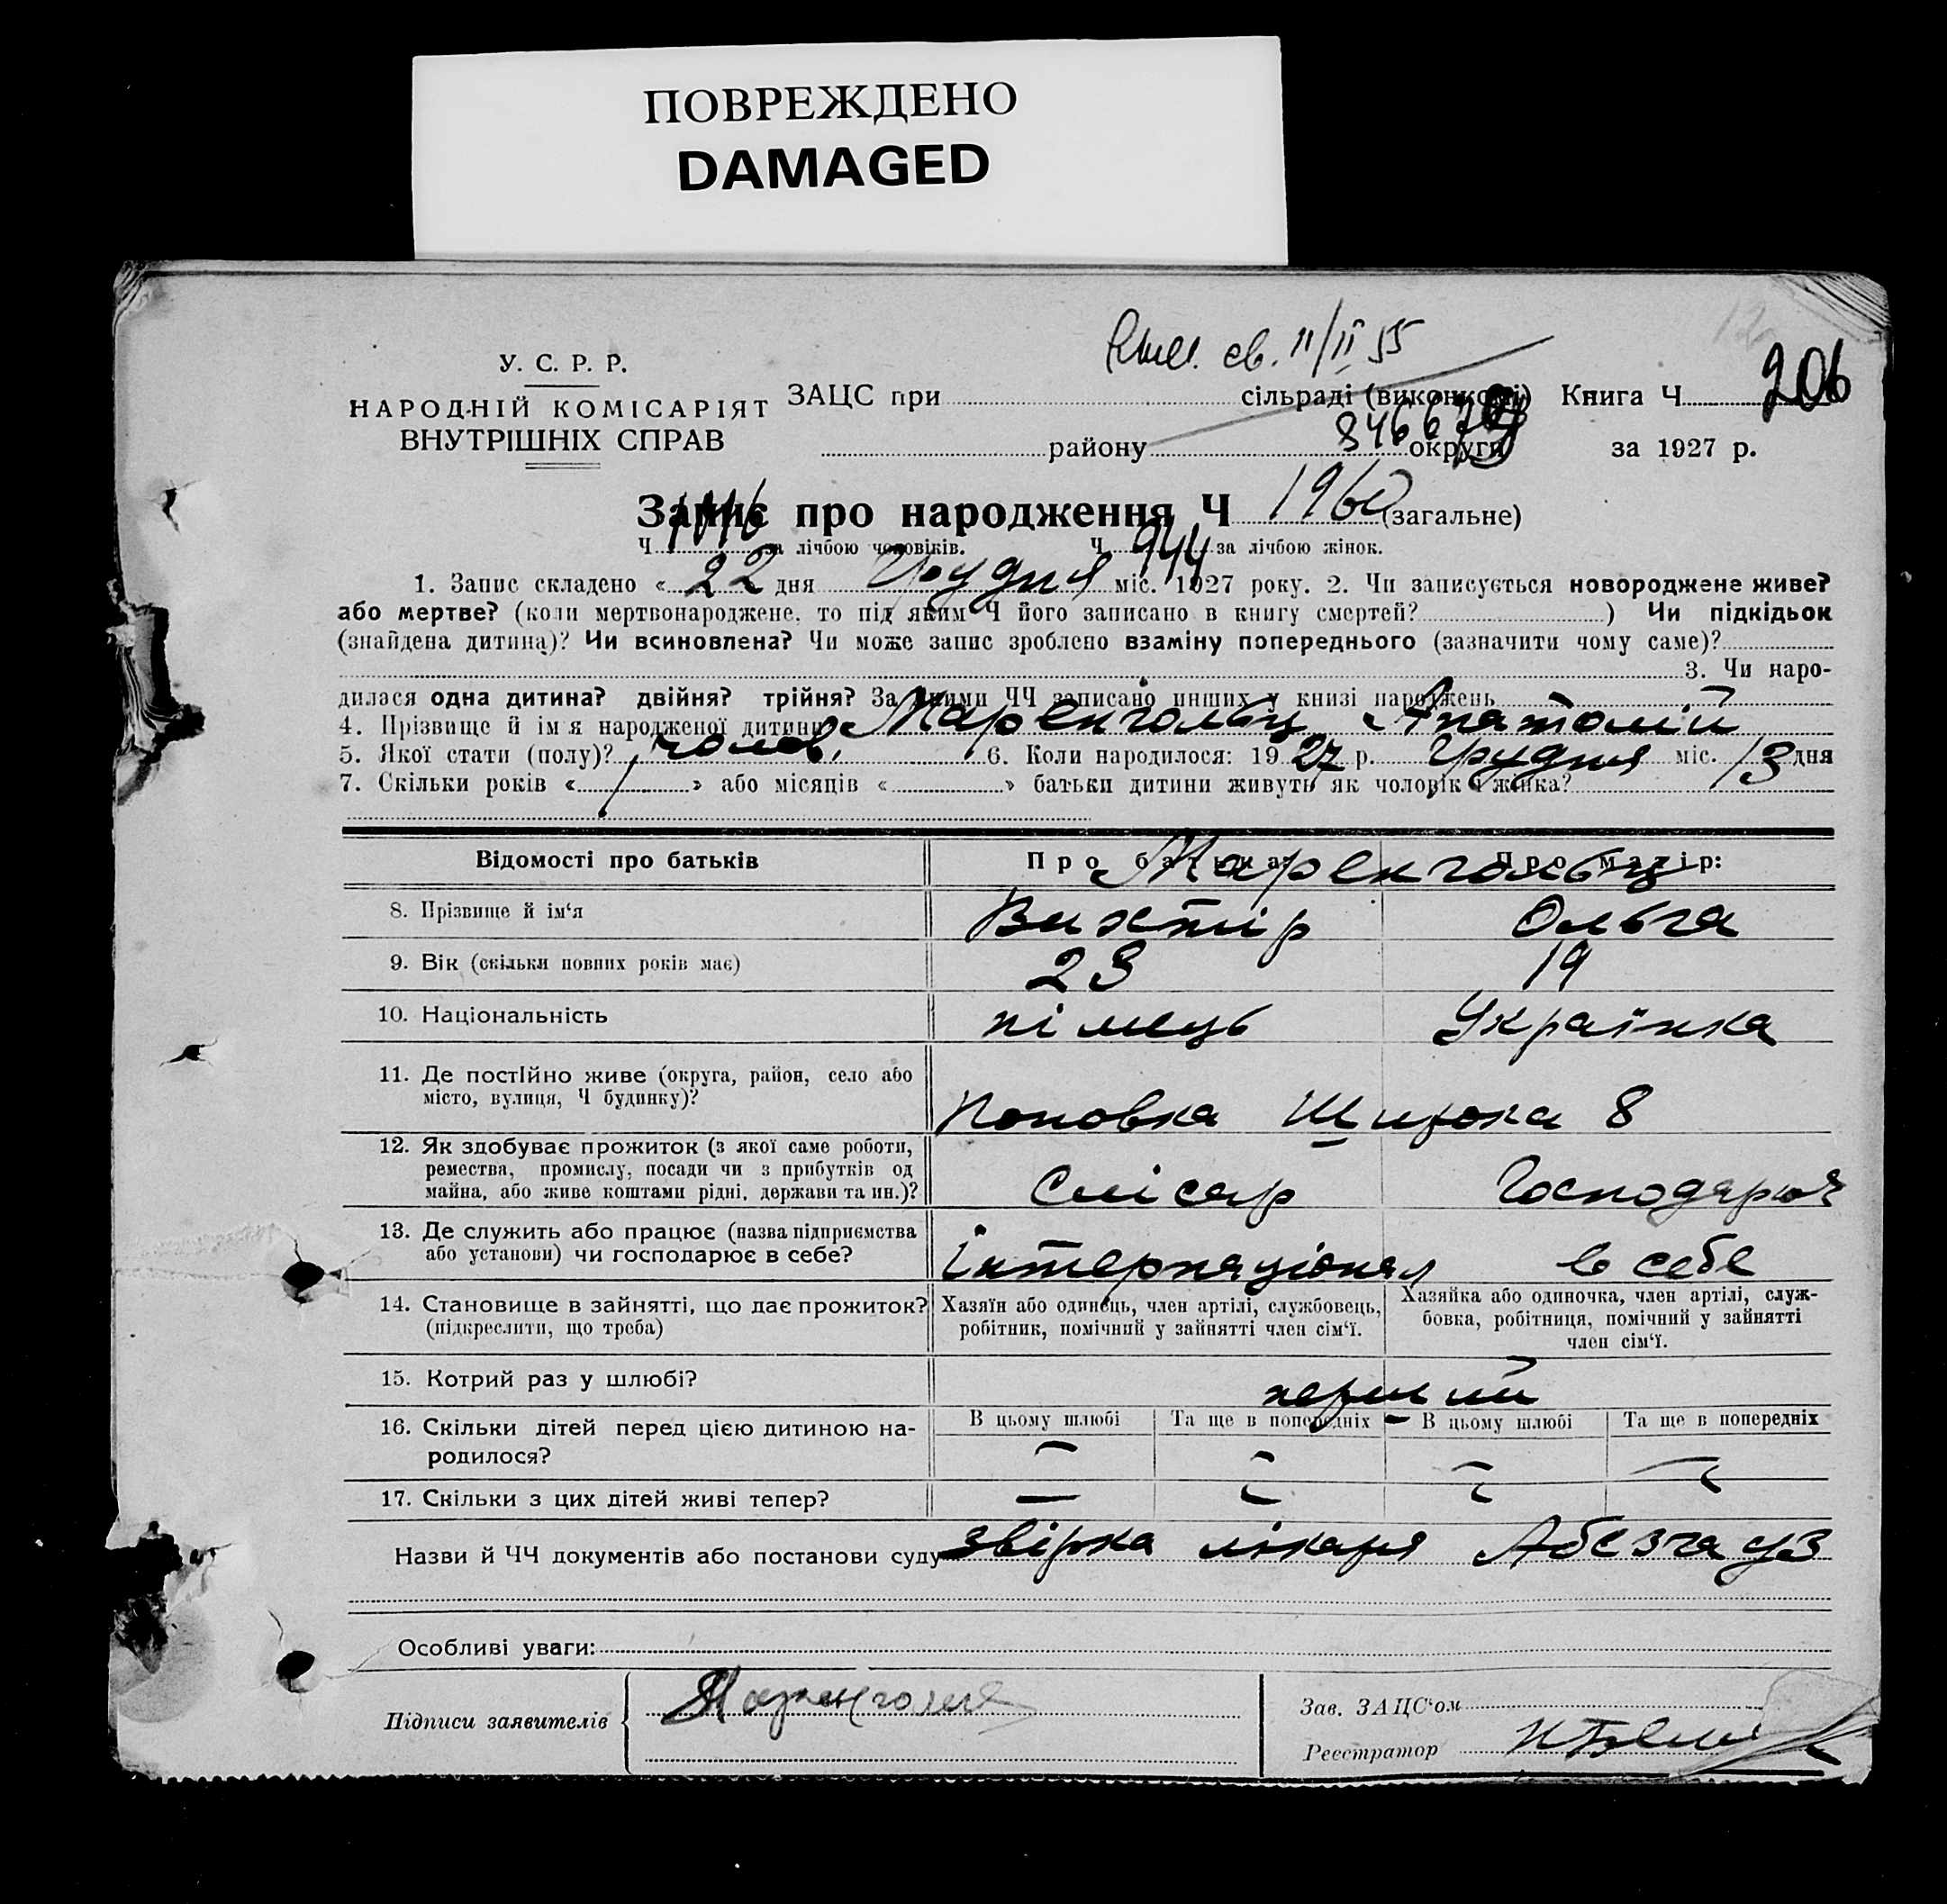 ПОВРЕЖДЕНО
DAMAGED
св. 11/II 55
У. С. Р. Р.
НАРОДНІЙ КОМІСАРІЯТ
ВНУТРІШНІХ СПРАВ
ЗАЦС при сільраді (виконкомі) Книга Ч. 206
району округи за 1927 р.
Запис про народження Ч 1960 (загальне)
Ч. 1016 за лічбою чоловіків. Ч. 944 за лічбою жінок.
1. Запис складено « 22 дня Грудня міс. 1927 року. 2. Чи записується новороджене живе?
або мертве? (коли мертвонароджене, то під яким Ч його записано в книгу смертей? ) Чи підкідьок
(знайдена дитина)? Чи всиновлена? Чи може запис зроблено взаміну попереднього (зазначити чому саме)?
3. Чи наро-
дилася одна дитина? двійня? трійня? За якими ЧЧ записано инших у книзі народжень
4. Прізвище й ім'я народженої дитини Маренгольц Анатолій
5. Якої стати (полу)? чолов. 6. Коли народилося: 19 27 р. Грудня міс. 13 дня
7. Скільки років « » або місяців « » батьки дитини живуть як чоловік і жінка?
Відомості про батьків Про батька: Про матір:
Маренгольц
8. Прізвище й ім'я Віктір Ольга
9. Вік (скільки повних років має) 23 19
10. Національність німець Українка
11. Де постійно живе (округа, район, село або
місто, вулиця, Ч будинку)? Поповка Широка 8
12. Як здобуває прожиток (з якої саме роботи,
ремества, промислу, посади чи з прибутків од
майна, або живе коштами рідні, держави та ин.)? Слісар Господарює
13. Де служить або працює (назва підприємства
або установи) чи господарює в себе? Інтернаціонал в себе
14. Становище в зайнятті, що дає прожиток?
(підкреслити, що треба)
Хазяїн або одинець, член артілі, службовець,
робітник, помічний у зайнятті член сім'ї.
Хазяйка або одиночка, член артілі, служ-
бовка, робітниця, помічний у зайнятті
член сім'ї.
15. Котрий раз у шлюбі? перший
16. Скільки дітей перед цією дитиною на-
родилося?
В цьому шлюбі Та ще в попередніх В цьому шлюбі Та ще в попередніх
— — — —
17. Скільки з цих дітей живі тепер? — — — —
Назви й ЧЧ документів або постанови суду звірка лікаря
Особливі уваги:
Підписи заявителів
Зав. ЗАЦС'ом
Реєстратор